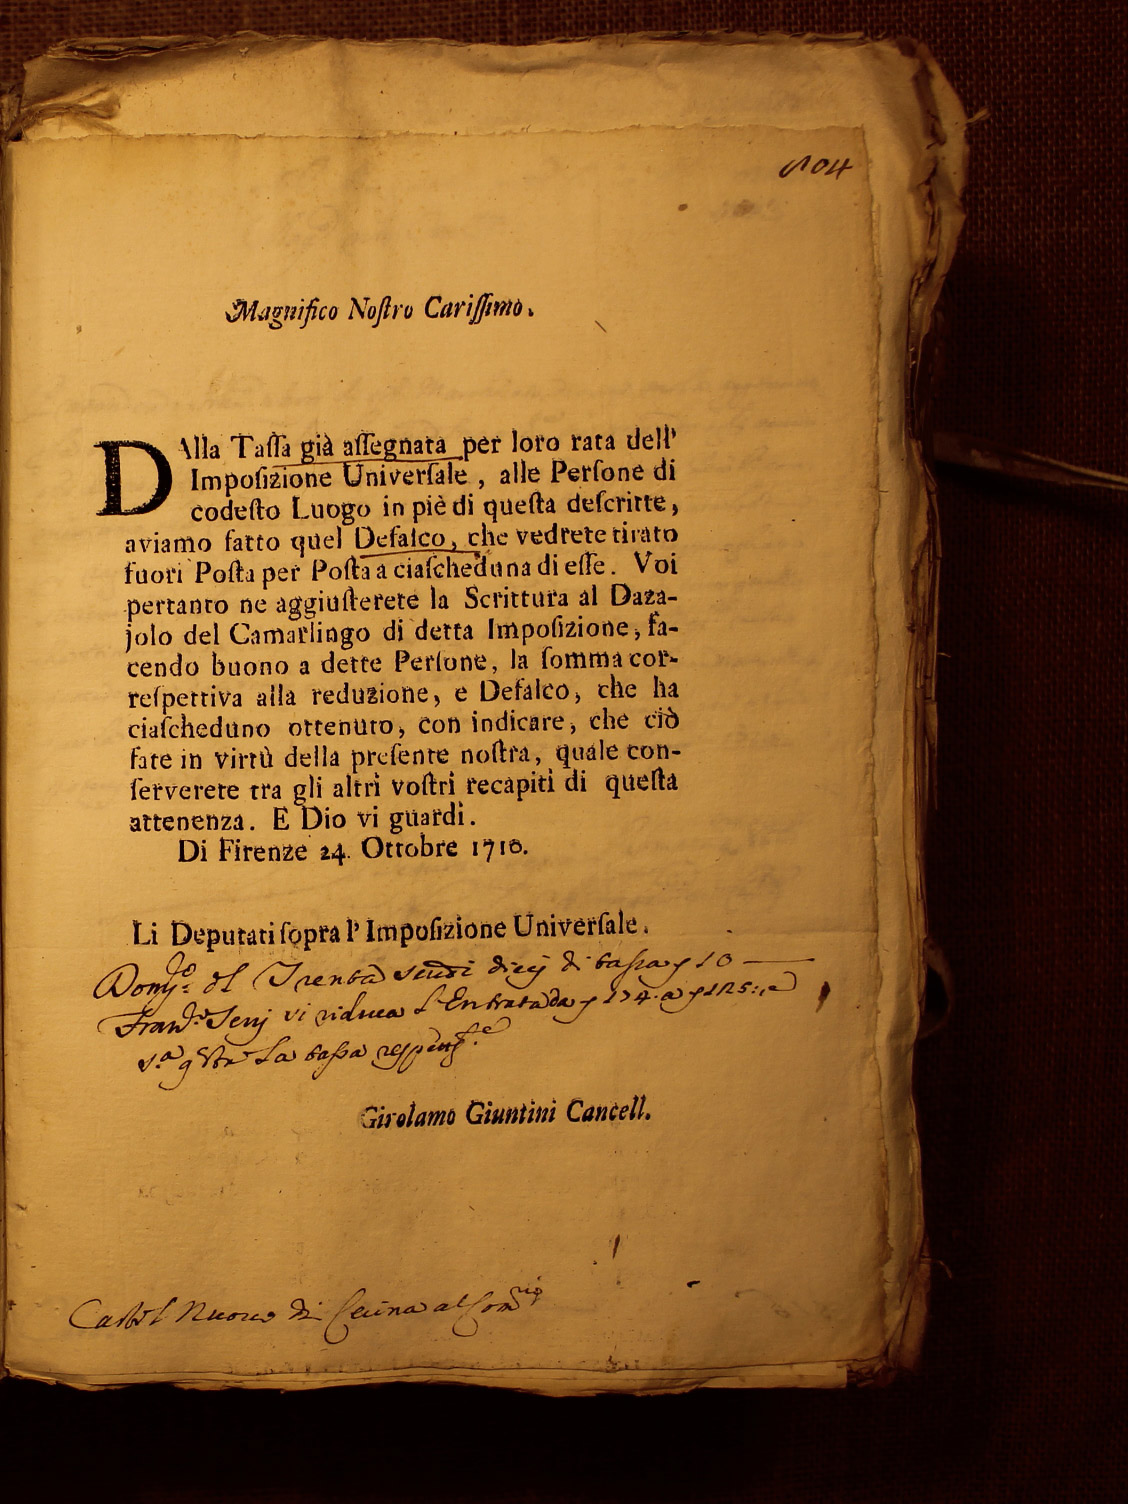 804
Magnifico Noſtro Cariſſimo.
DAlla Taſſa già aſſegnata per loro rata dell'
Impoſizione Univerſale, alle Perſone di
codeſto Luogo in piè di queſta deſcritte,
aviamo fatto quel Defalco, che vedrete tirato
fuori Poſta per Poſta a ciaſcheduna di eſſe. Voi
pertanto ne aggiuſterete la Scrittura al Daza-
jolo del Camarlingo di detta Impoſizione, fa-
cendo buono a dette Perſone, la ſomma cor-
reſpettiva alla reduzione, e Defalco, che ha
ciaſcheduno ottenuto, con indicare, che ciò
fate in virtù della preſente noſtra, quale con-
ſerverete tra gli altri voſtri recapiti di queſta
attenenza. E Dio vi guardi.
Di Firenze 24. Ottobre 1710.
Li Deputati ſopra l'Impoſizione Univerſale.
Trenta scudi diecj di tassa 10
vi riduca l'Entrata da 174. a 125
La tassa
Girolamo Giuntini Cancell.
Castel Nuovo di Cecina al